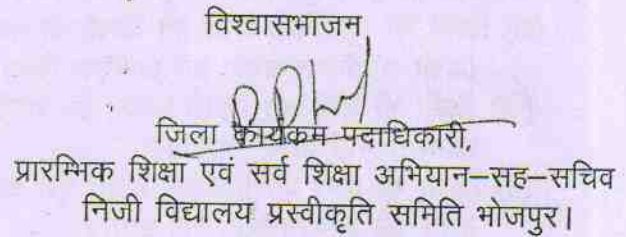 विश्वासभाजन
जिला कार्यक्रम पदाधिकारी,
प्रारम्भिक शिक्षा एवं सर्व शिक्षा अभियान–सह–सचिव
निजी विद्यालय प्रस्वीकृति समिति भोजपुर।